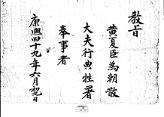 教旨
黃夏臣爲朝散
大夫行典牲署
奉事者
康熙四十九年六月初日